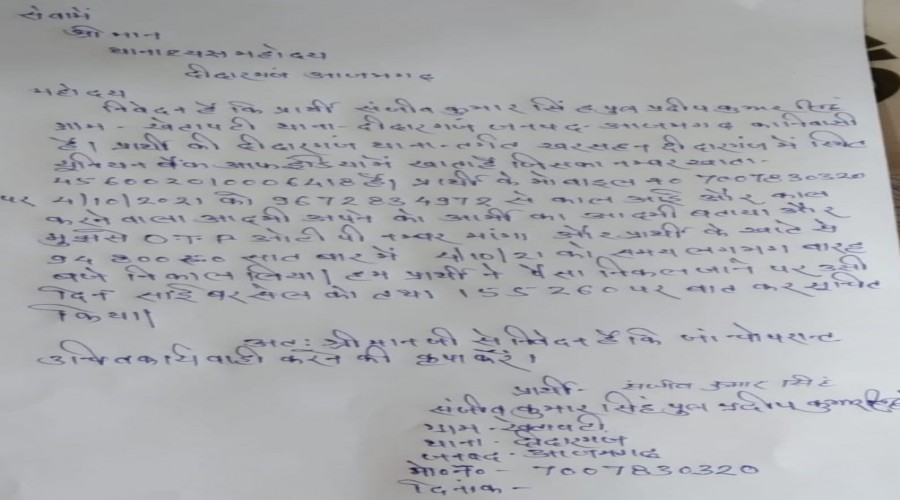 सेवामें
श्रीमान
थानाध्यक्ष महोदय
दीदारगंज आजमगढ़
महोदय
निवेदन है कि प्रार्थी संजीत कुमार सिंह पुत्र प्रदीप कुमार सिंह
ग्राम - थाना - दीदारगंज जनपद - आजमगढ़ का निवासी
है। प्रार्थी का दीदारगंज थाना - तर्गत खरसहन दीदारगंज में स्थित
यूनियन बैंक आफ इंडिया में खाता है जिसका नम्बर खाता -
456002010006418 है। प्रार्थी के मोबाइल नं० 7007830320
पर 4/10/2021 को 9672834972 से काल आई और काल
करने वाला आदमी अपने को आर्मी का आदमी बताया और
मुझसे O.T.P ओटीपी नम्बर मांगा और प्रार्थी के खाते से
94800 रू० सात बार में 4/10/21 को समय लगभग बारह
बजे निकाल लिया। हम प्रार्थी ने पैसा निकल जाने पर उसी
दिन साईबर सेल को तथा 155260 पर बात कर सूचित
किया।
अतः श्रीमान जी से निवेदन है कि जांचोपरान्त
उचित कार्यवाही करने की कृपा करें।
प्रार्थी - संजीत कुमार सिंह
संजीत कुमार सिंह पुत्र प्रदीप कुमार सिंह
ग्राम -
थाना - दीदारगंज
जनपद - आजमगढ़
मो० नं० - 7007830320
दिनांक -